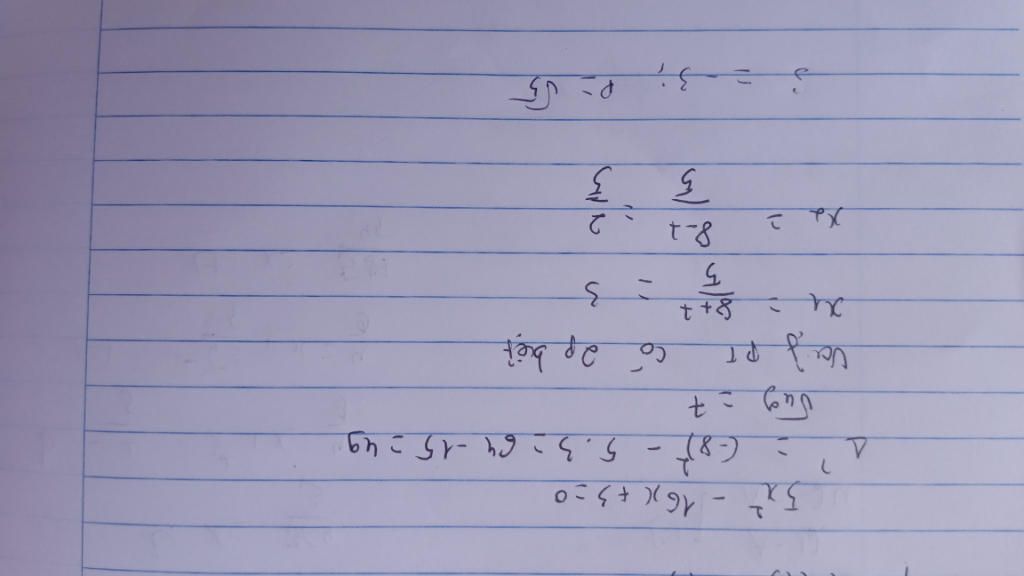 5x² - 16x + 3 = 0
Δ' = (-8)² - 5.3 = 64 - 15 = 49
√49 = 7
Vậy PT có 2 p biệt
x₁ = 8+7/5 = 3
x₂ = 8-7/5 = 2/5
S = -3; P = √5